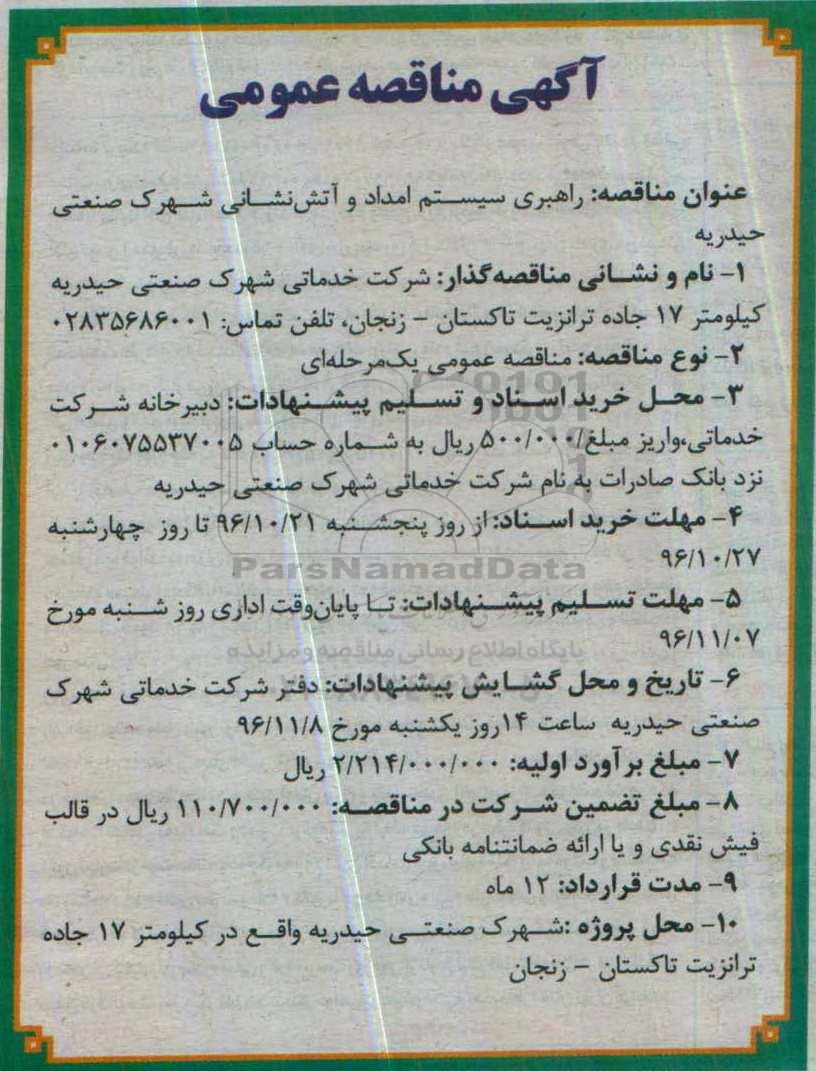 آگهی مناقصه عمومی
عنوان مناقصه: راهبری سیستم امداد و آتش‌نشانی شهرک صنعتی
حیدریه
۱- نام و نشانی مناقصه‌گذار: شرکت خدماتی شهرک صنعتی حیدریه
کیلومتر ۱۷ جاده ترانزیت تاکستان - زنجان، تلفن تماس: ۰۲۸۳۵۶۸۶۰۰۱
۲- نوع مناقصه: مناقصه عمومی یک‌مرحله‌ای
۳- محل خرید اسناد و تسلیم پیشنهادات: دبیرخانه شرکت
خدماتی،واریز مبلغ/۵۰۰/۰۰۰ ریال به شماره حساب ۰۱۰۶۰۷۵۵۳۷۰۰۵
نزد بانک صادرات به نام شرکت خدماتی شهرک صنعتی حیدریه
۴- مهلت خرید اسناد: از روز پنجشنبه ۹۶/۱۰/۲۱ تا روز چهارشنبه
۹۶/۱۰/۲۷
ParsNamadData
۵- مهلت تسلیم پیشنهادات: تا پایان‌وقت اداری روز شنبه مورخ
۹۶/۱۱/۰۷
پایگاه اطلاع رسانی مناقصه و مزایده
۶- تاریخ و محل گشایش پیشنهادات: دفتر شرکت خدماتی شهرک
صنعتی حیدریه ساعت ۱۴روز یکشنبه مورخ ۹۶/۱۱/۸
۷- مبلغ برآورد اولیه: ۲/۲۱۴/۰۰۰/۰۰۰ ریال
۸- مبلغ تضمین شرکت در مناقصه: ۱۱۰/۷۰۰/۰۰۰ ریال در قالب
فیش نقدی و یا ارائه ضمانتنامه بانکی
۹- مدت قرارداد: ۱۲ ماه
۱۰- محل پروژه :شهرک صنعتی حیدریه واقع در کیلومتر ۱۷ جاده
ترانزیت تاکستان - زنجان